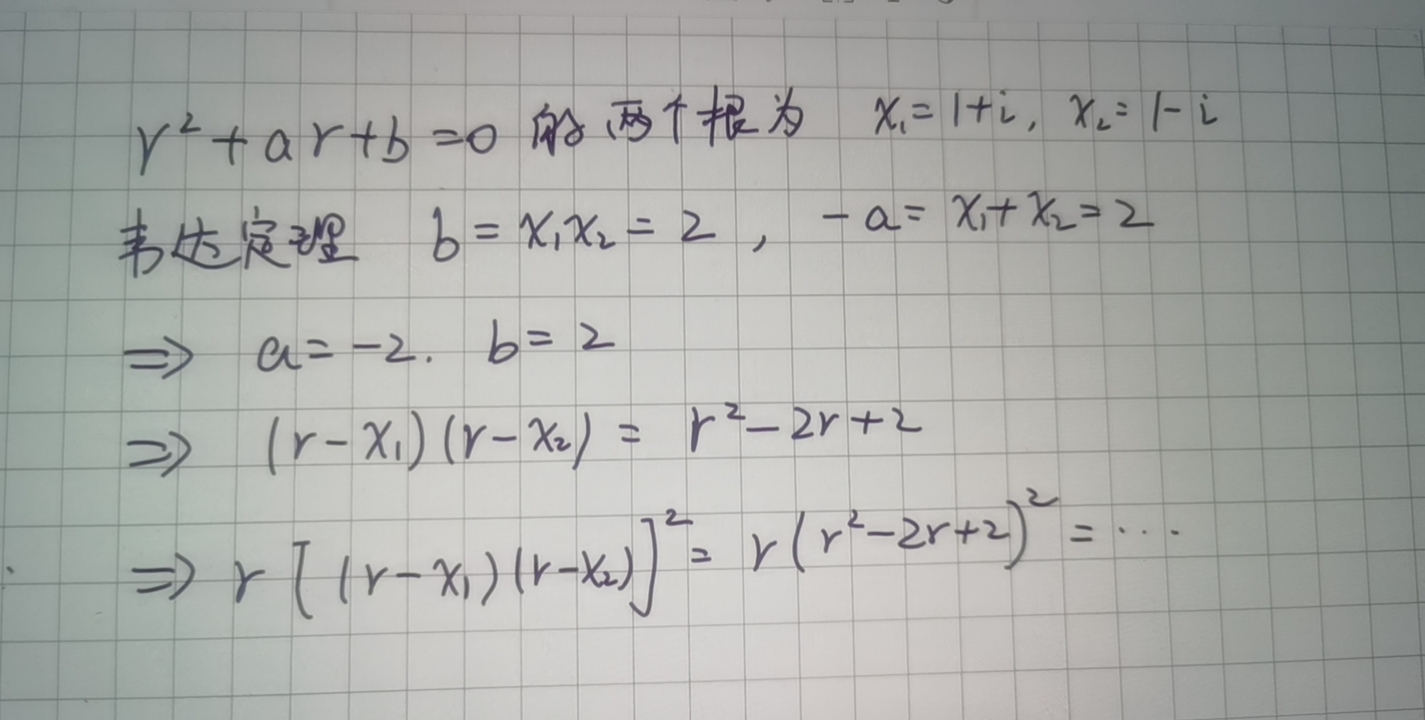 r²+ar+b=0 的两个根为 x₁=1+i, x₂=1-i
韦达定理 b=x₁x₂=2, -a=x₁+x₂=2
⇒ a=-2. b=2
⇒ (r-x₁)(r-x₂)=r²-2r+2
⇒ r[(r-x₁)(r-x₂)]²=r(r²-2r+2)²=···